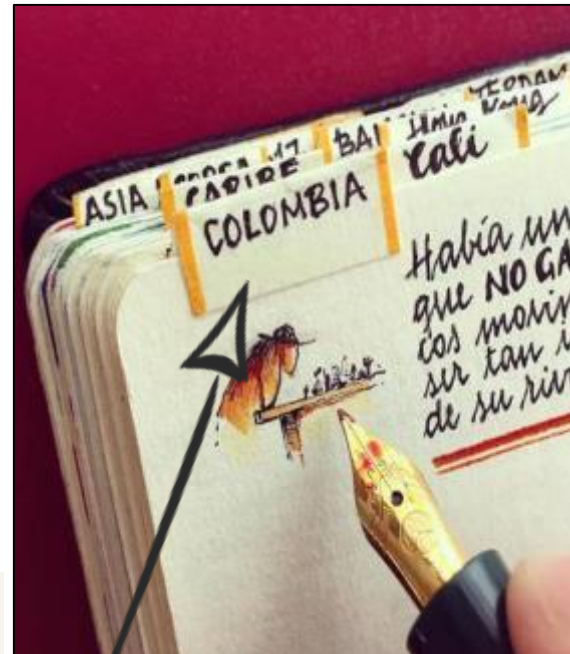 ASIA
CARIBE
COLOMBIA
Cali
Había un
que NO GA
cos morin
ser tan i
de su riv